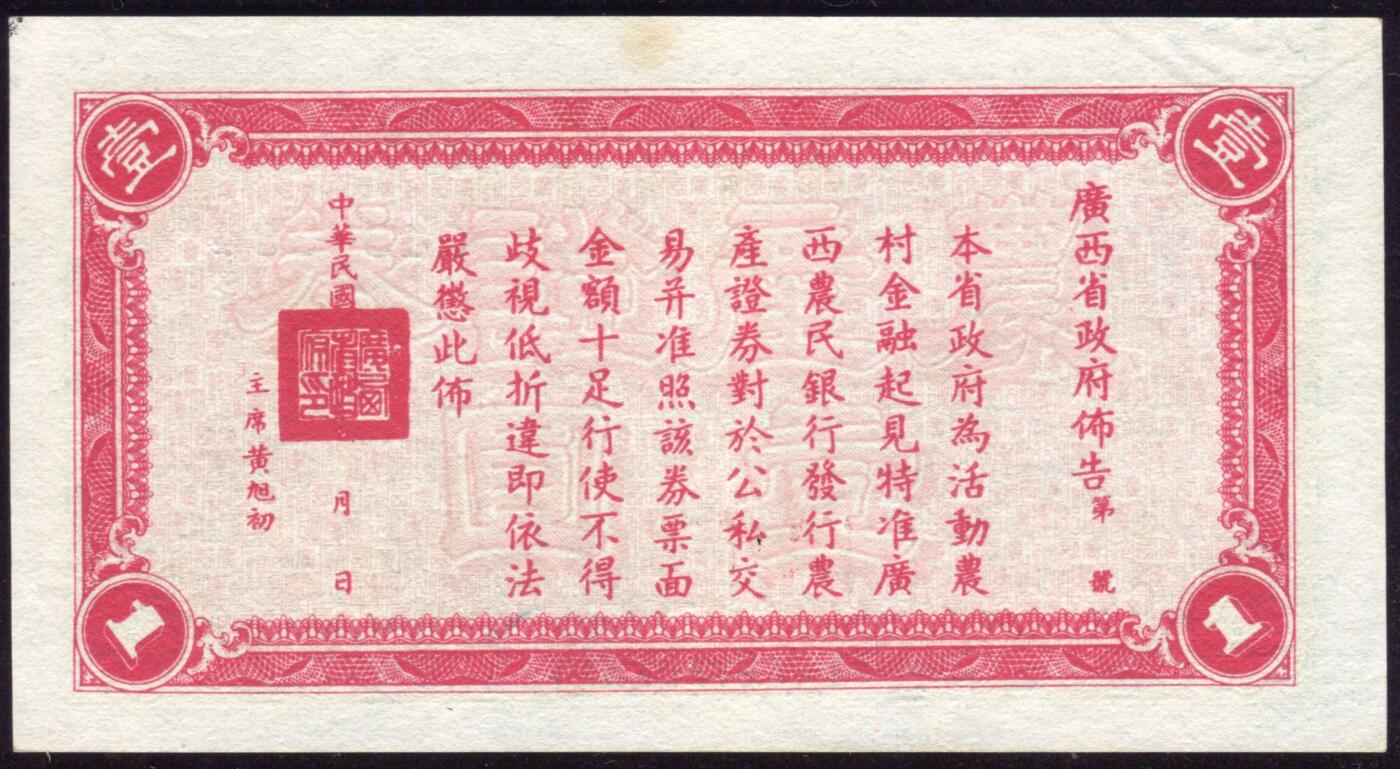 壹
壹
廣西省政府佈告第 號
本省政府為活動農
村金融起見特准廣
西農民銀行發行農
產證券對於公私交
易并准照該券票面
金額十足行使不得
歧視低折違即依法
嚴懲此佈
中華民國 月 日
主席黃旭初
廣西省政府印
1
1